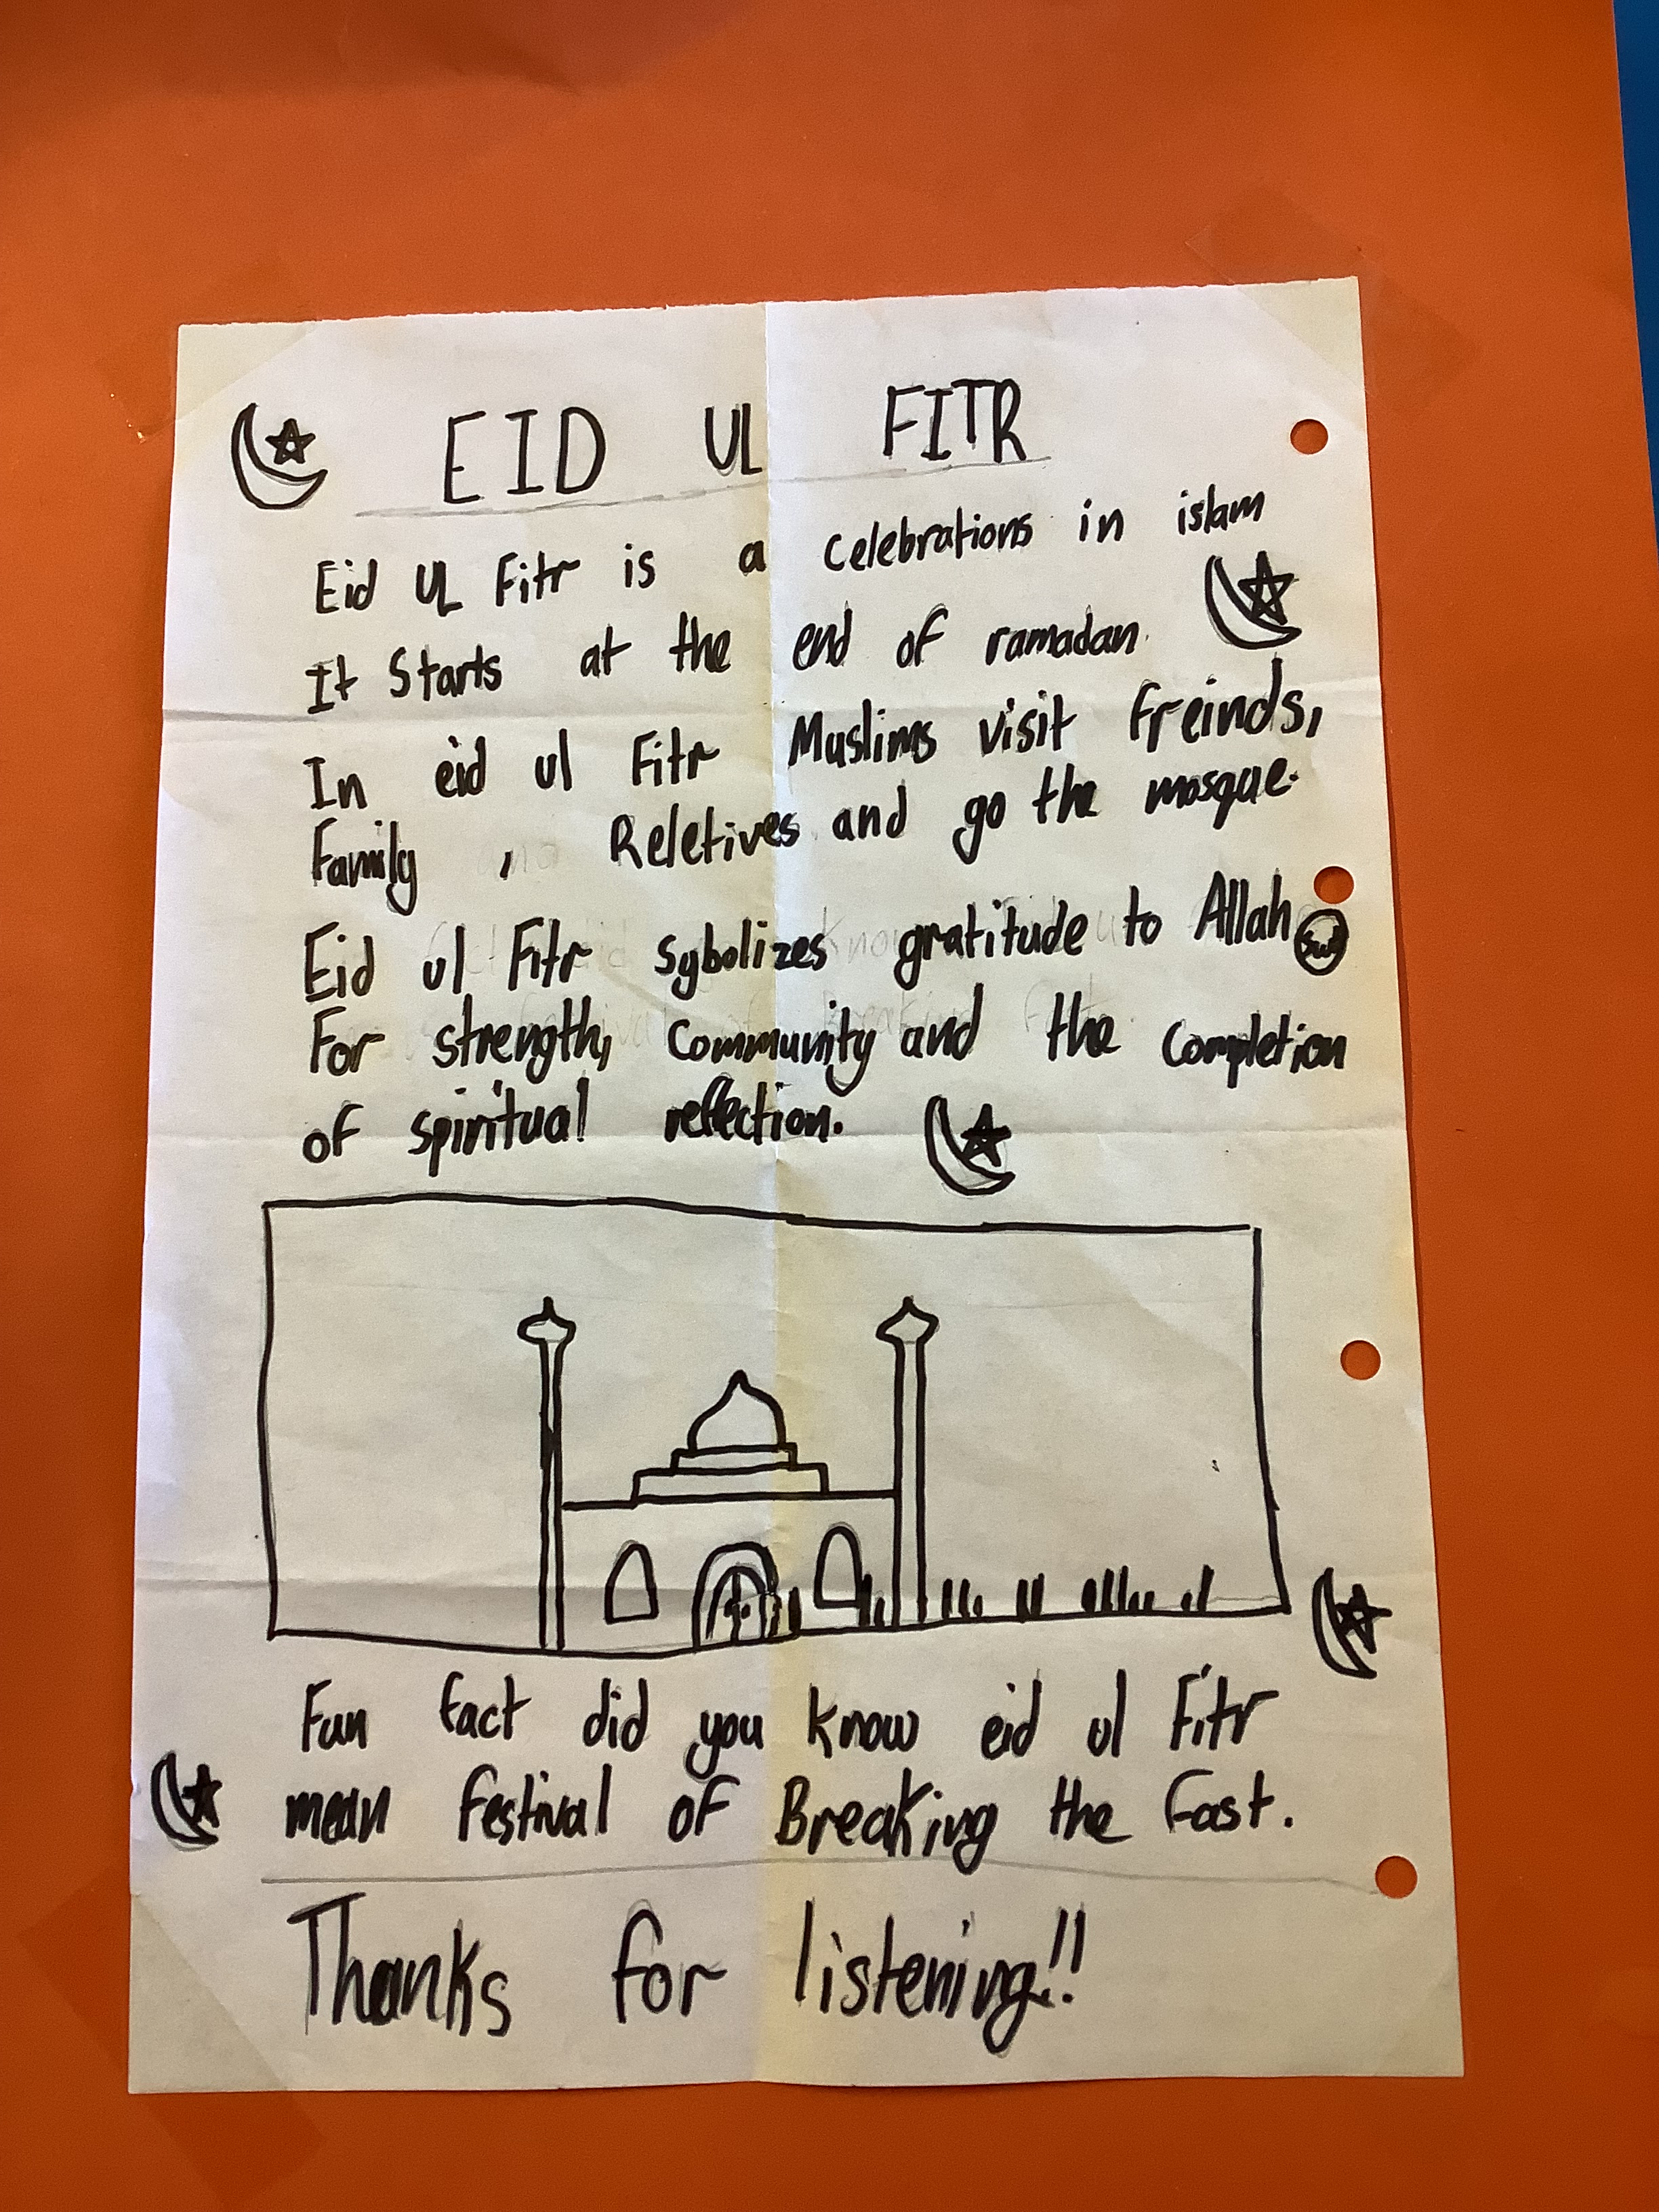 EID UL FITR
Eid UL Fitr is a celebrations in islam
It Starts at the end of ramadan.
In eid ul Fitr Muslims visit freinds,
Family , Reletives and go the mosque.
Eid ul Fitr sybolizes gratitude to Allah swt
For strength, Community and the completion
of spiritual reflection.
Fun fact did you know eid ul Fitr
mean festival of Breaking the fast.
Thanks for listening!!